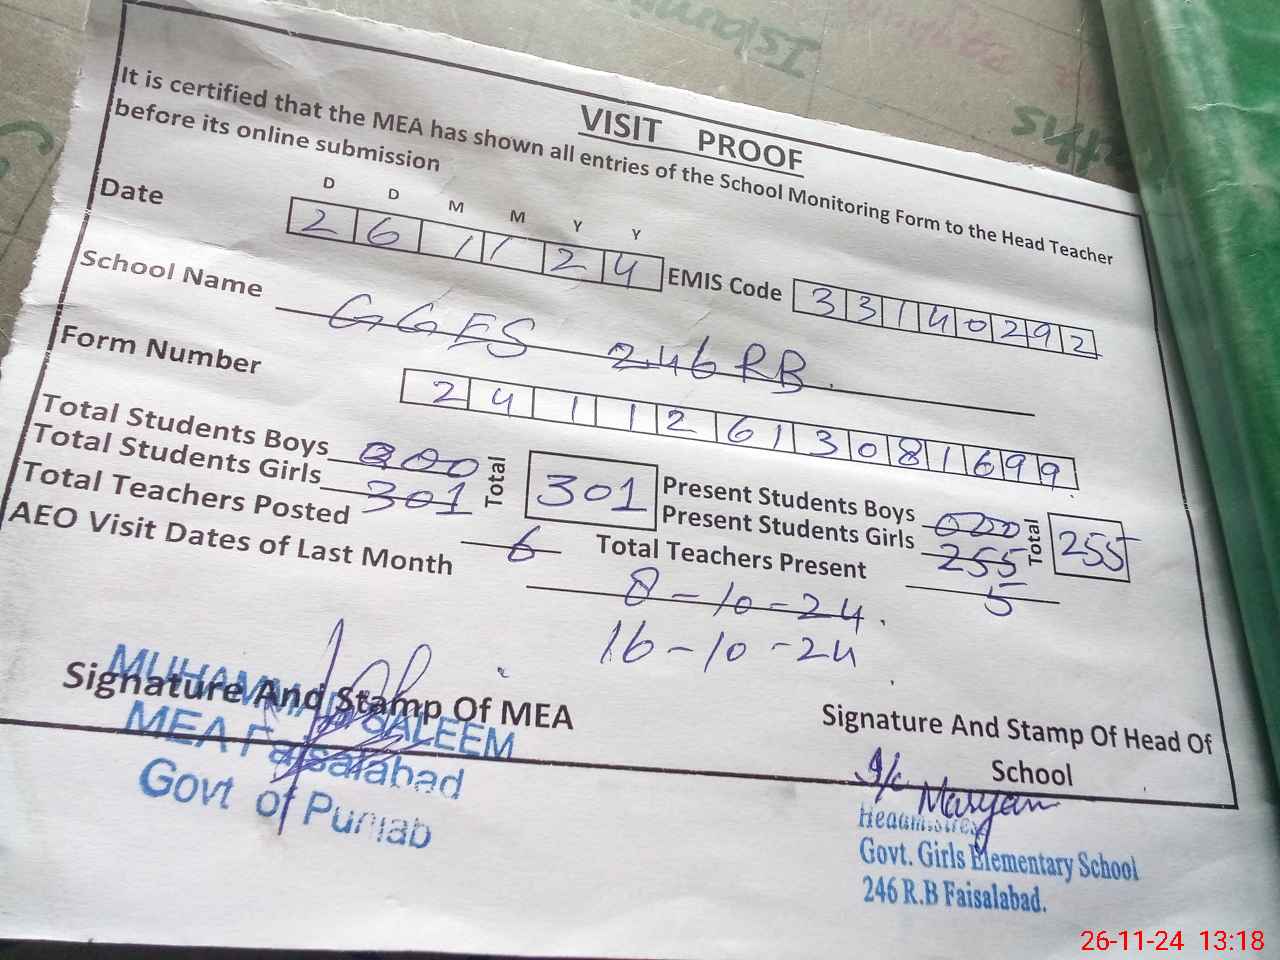 VISIT PROOF
It is certified that the MEA has shown all entries of the School Monitoring Form to the Head Teacher
before its online submission
D D M M Y Y
Date 26 11 24 EMIS Code 33140292
School Name GGES 246 RB.
Form Number 24112613081699
Total Students Boys 000
Total Students Girls 301
Total 301
Present Students Boys 000
Present Students Girls 255
Total 255
Total Teachers Posted 6 Total Teachers Present 5
AEO Visit Dates of Last Month 8-10-24.
16-10-24
Signature And Stamp Of MEA
MUHAMMAD SALEEM
MEA Faisalabad
Govt of Punjab
Signature And Stamp Of Head Of
School
I/c Maryam
Headmistress
Govt. Girls Elementary School
246 R.B Faisalabad.
26-11-24 13:18